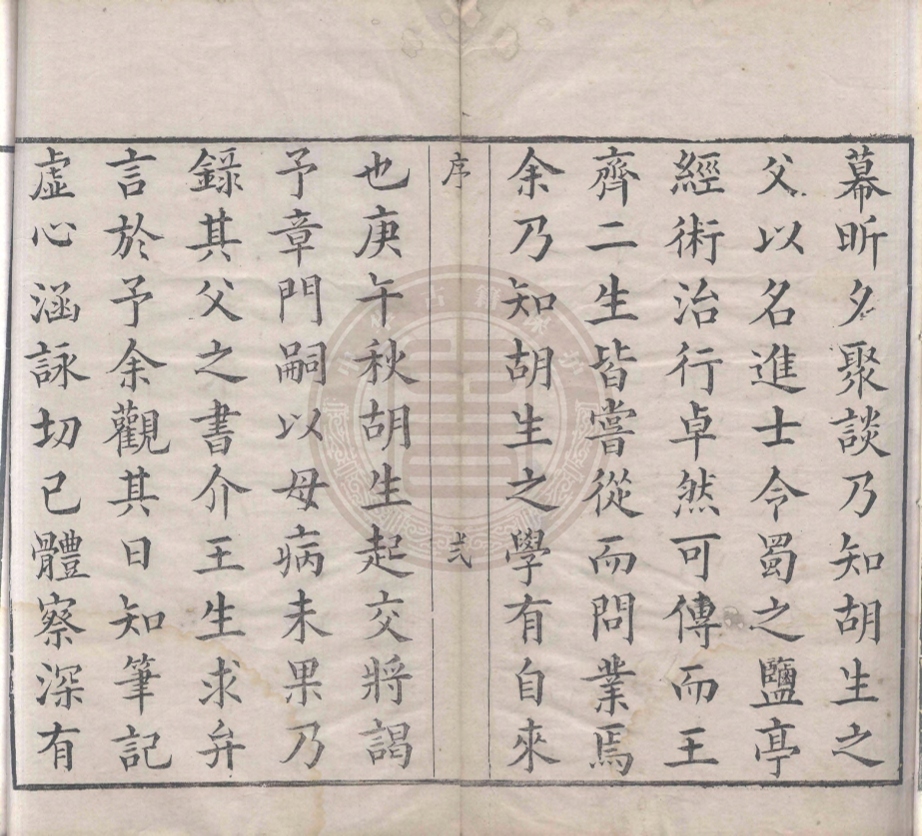 幕昕夕聚談乃知胡生之
父以名進士令蜀之鹽亭
經術治行卓然可傳而王
齊二生皆嘗從而問業焉
余乃知胡生之學有自來
序 弍
也庚午秋胡生起交將謁
予章門嗣以母病未果乃
錄其父之書介王生求弁
言於予余觀其日知筆記
虛心涵詠切己體察深有